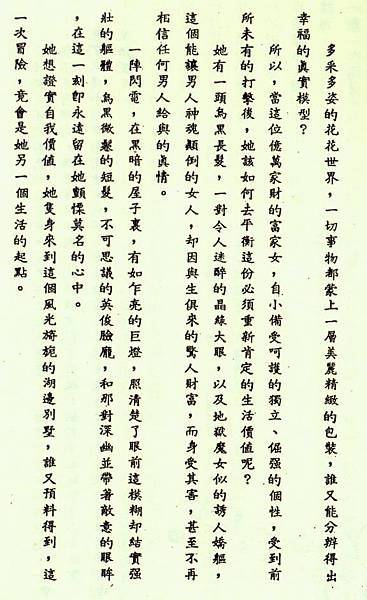 多采多姿的花花世界，一切事物都蒙上一層美麗精緻的包裝，誰又能分辨得出
幸福的真實模型？
所以，當這位億萬家財的富家女，自小備受呵護的獨立、倔强的個性，受到前
所未有的打擊後，她該如何去平衡這份必須重新肯定的生活價值呢？
她有一頭烏黑長髮，一對令人迷醉的晶綠大眼，以及地獄魔女似的誘人嬌軀，
這個能讓男人神魂顛倒的女人，却因與生俱來的驚人財富，而身受其害，甚至不再
相信任何男人給與的真情。
一陣閃電，在黑暗的屋子裏，有如乍亮的巨燈，照清楚了眼前這模糊却結實强
壯的軀體，烏黑微鬈的短髮，不可思議的英俊臉龐，和那對深幽並帶著敵意的眼眸
，在這一刻即永遠留在她顫慄莫名的心中。
她想證實自我價值，她隻身來到這個風光旖旎的湖邊別墅，誰又預料得到，這
一次冒險，竟會是她另一個生活的起點。